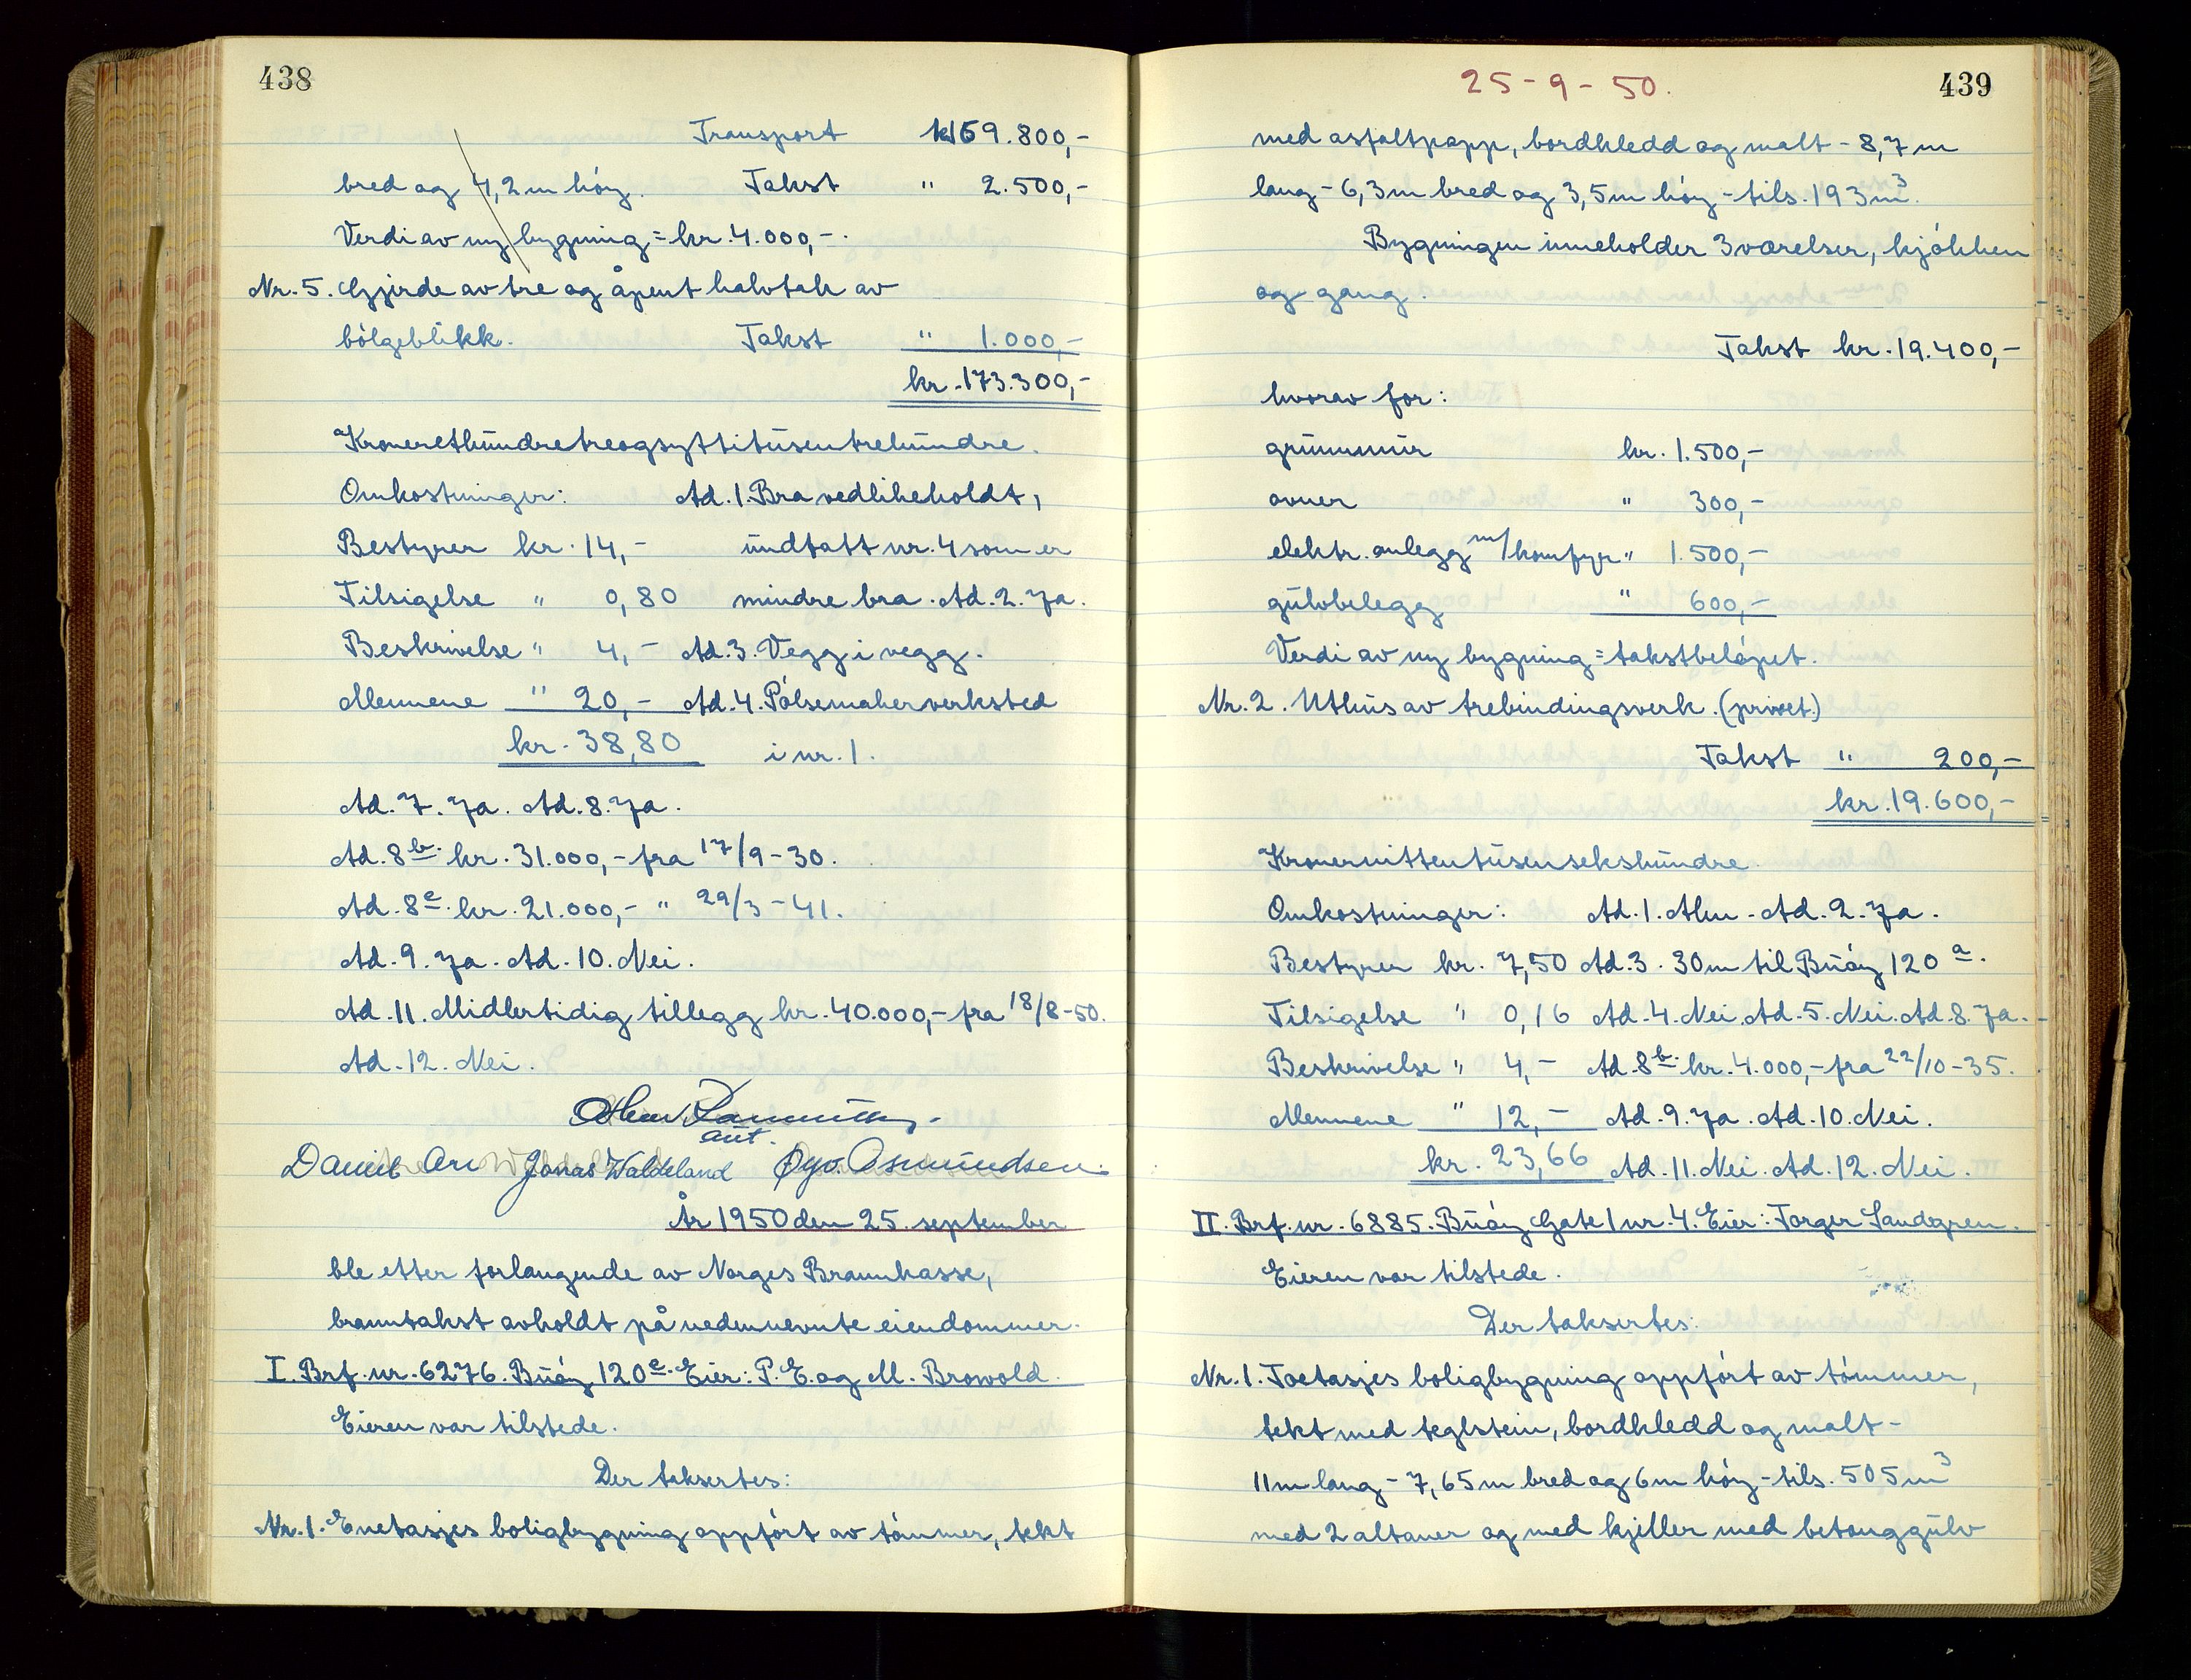 438
Transport kr 169.800,-
bred og 4,2 m høy. Takst " 2.500,-
Verdi av ny bygning = kr. 4.000,-.
Nr. 5. Gjerde av tre og åpent halvtak av
bølgeblikk. Takst " 1.000,-
kr. 173.300,-
Kroneretthundretreogsyttitusentrehundre.
Omkostninger: Ad. 1. Bra vedlikeholdt,
Bestyrer kr. 14,- undtatt nr. 4 som er
Tilsigelse " 0,80 mindre bra. Ad. 2. Ja.
Beskrivelse " 4,- Ad. 3. Vegg i vegg.
Mennene " 20,- Ad. 4. Pølsemakerverksted
kr. 38,80 i nr. 1.
Ad. 7. Ja. Ad. 8. Ja.
Ad. 8b. kr. 31.000,- fra 17/9-30.
Ad. 8c. kr. 21.000,- " 29/3-41.
Ad. 9. Ja. Ad. 10. Nei.
Ad. 11. Midlertidig tillegg kr. 40.000,- fra 18/8-50.
Ad. 12. Nei.
aut.
Daniel Jonas Waldeland Øyv. Osmundsen.
År 1950 den 25. september
ble etter forlangende av Norges Brannkasse,
branntakst avholdt på nedennevnte eiendommer.
I. Brf. nr. 6276. Buøy 120c. Eier: P. E. og M. Browold.
Eieren var tilstede.
Der taksertes:
Nr. 1. Enetasjes boligbygning oppført av tømmer, tekt
25-9-50.
439
med asfaltpapp, bordkledd og malt - 8,7 m
lang - 6,3 m bred og 3,5 m høy - tils. 193 m³.
Bygningen inneholder 3 værelser, kjøkken
og gang.
Takst kr. 19.400,-
hvorav for:
grunnmur kr. 1.500,-
ovner " 300,-
elektr. anlegg m/komfyr " 1.500,-
gulvbelegg " 600,-
Verdi av ny bygning = takstbeløpet.
Nr. 2. Uthus av trebindingsverk. (privet.)
Takst " 200,-
kr. 19.600,-
Kronernittentusensekshundre.
Omkostninger: Ad. 1. Alm. Ad. 2. Ja.
Bestyrer kr. 7,50 Ad. 3. 30 m til Buøy 120a.
Tilsigelse " 0,16 Ad. 4. Nei. Ad. 5. Nei. Ad. 8. Ja.
Beskrivelse " 4,- Ad. 8b. kr. 4.000,- fra 22/10-35.
Mennene " 12,- Ad. 9. Ja. Ad. 10. Nei.
kr. 23,66 Ad. 11. Nei. Ad. 12. Nei.
II. Brf. nr. 6885. Buøy Gate 1 nr. 4. Eier: Torger Sandgren.
Eieren var tilstede.
Der taksertes:
Nr. 1. Toetasjes boligbygning oppført av tømmer,
tekt med teglstein, bordkledd og malt -
11 m lang - 7,65 m bred og 6 m høy - tils. 505 m³
med 2 altaner og med kjeller med betonggulv